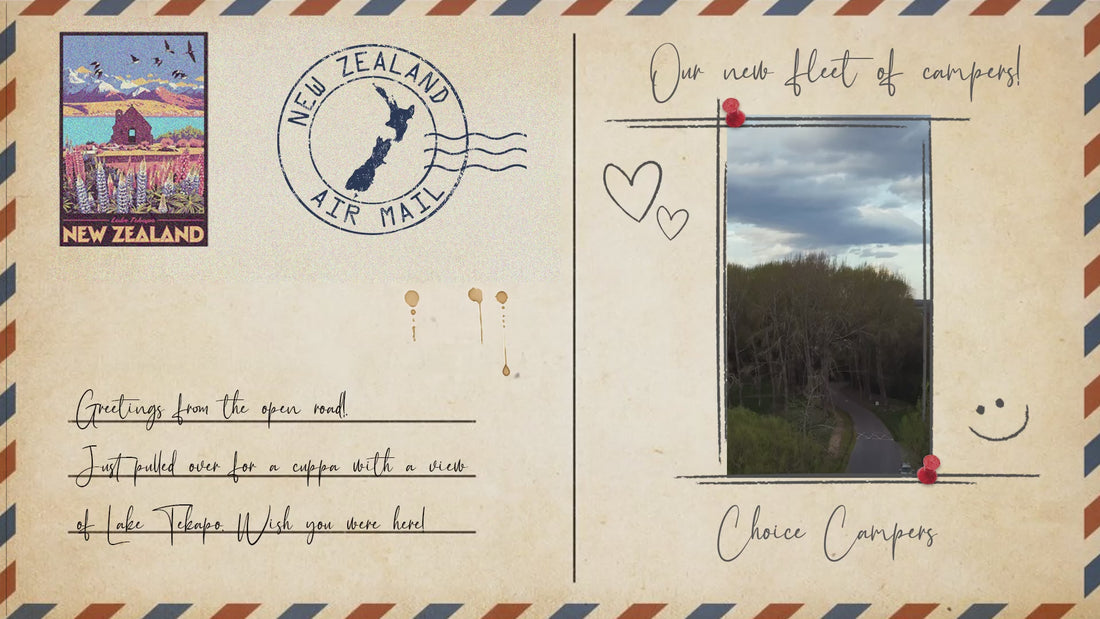 Lake Tekapo
NEW ZEALAND
NEW ZEALAND
AIR MAIL
Greetings from the open road!
Just pulled over for a cuppa with a view
of Lake Tekapo. Wish you were here!
Our new fleet of campers!
Choice Campers